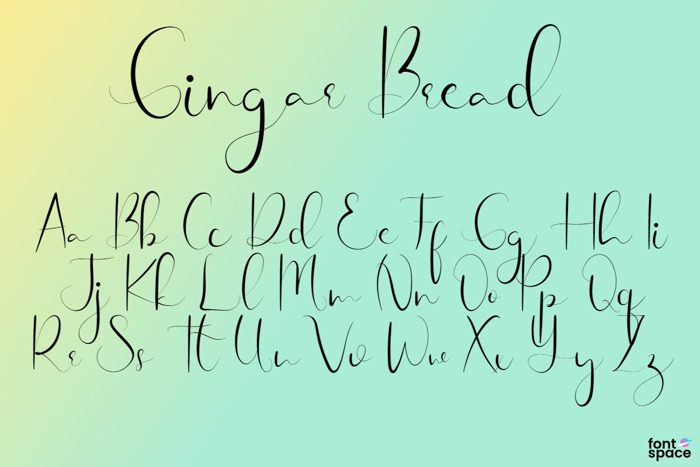 Gingar Bread
Aa Bb Cc Dd Ee Ff Gg Hh Ii
Jj Kk Ll Mm Nn Oo Pp Qq
Rr Ss Tt Uu Vv Ww Xx Yy Zz
font
space